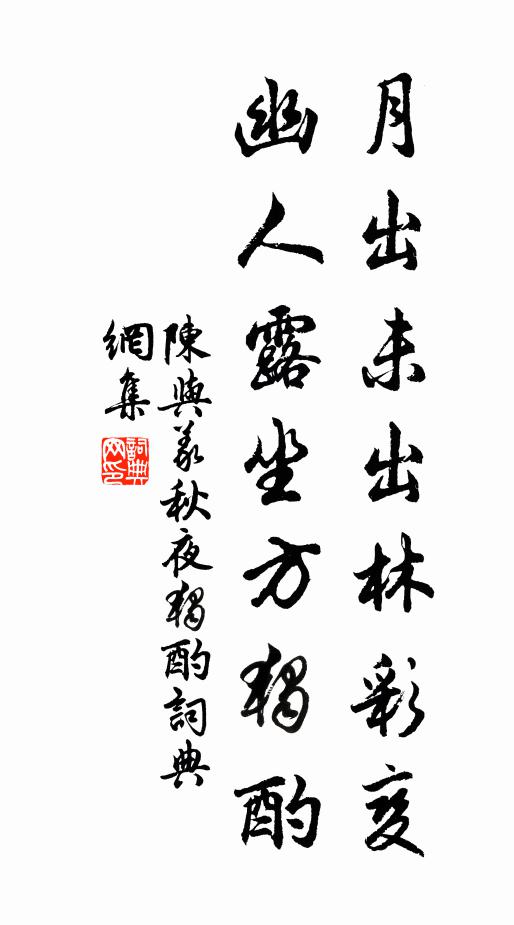 月出未出林彩變
幽人露坐方獨酌
陳與義秋夜獨酌詞典
網集
詞典網印